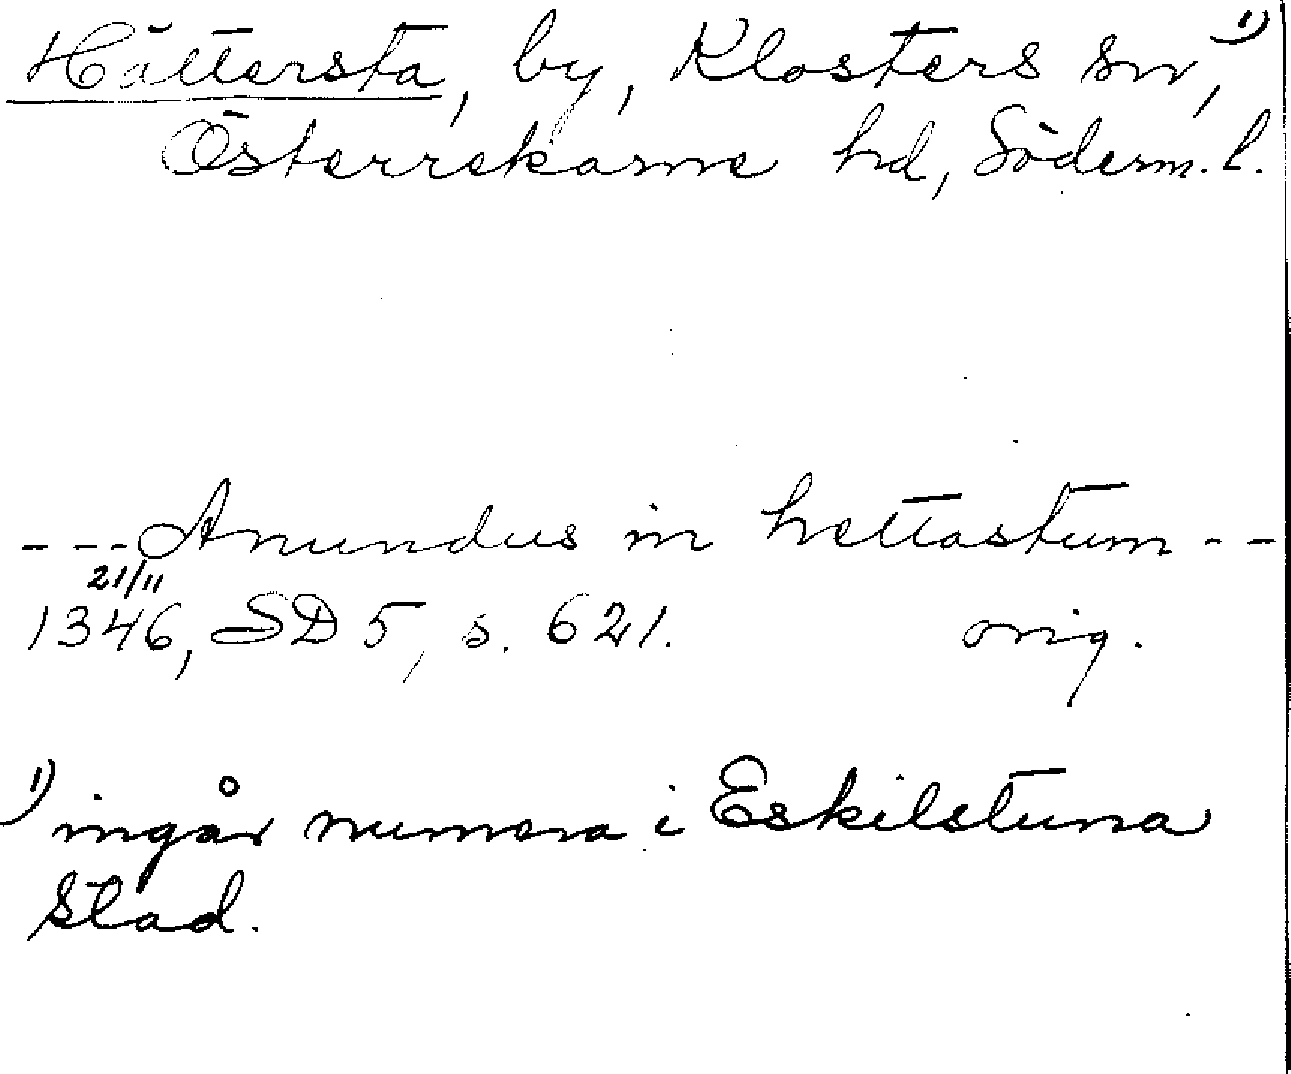 Hättersta, by, Klosters sn, 1)
Österrekarne hd, Söderm. l.
- - - Anundus in hettastum - -
21/11
1346, SD 5, s. 621. orig.
1) ingår numera i Eskilstuna
stad.